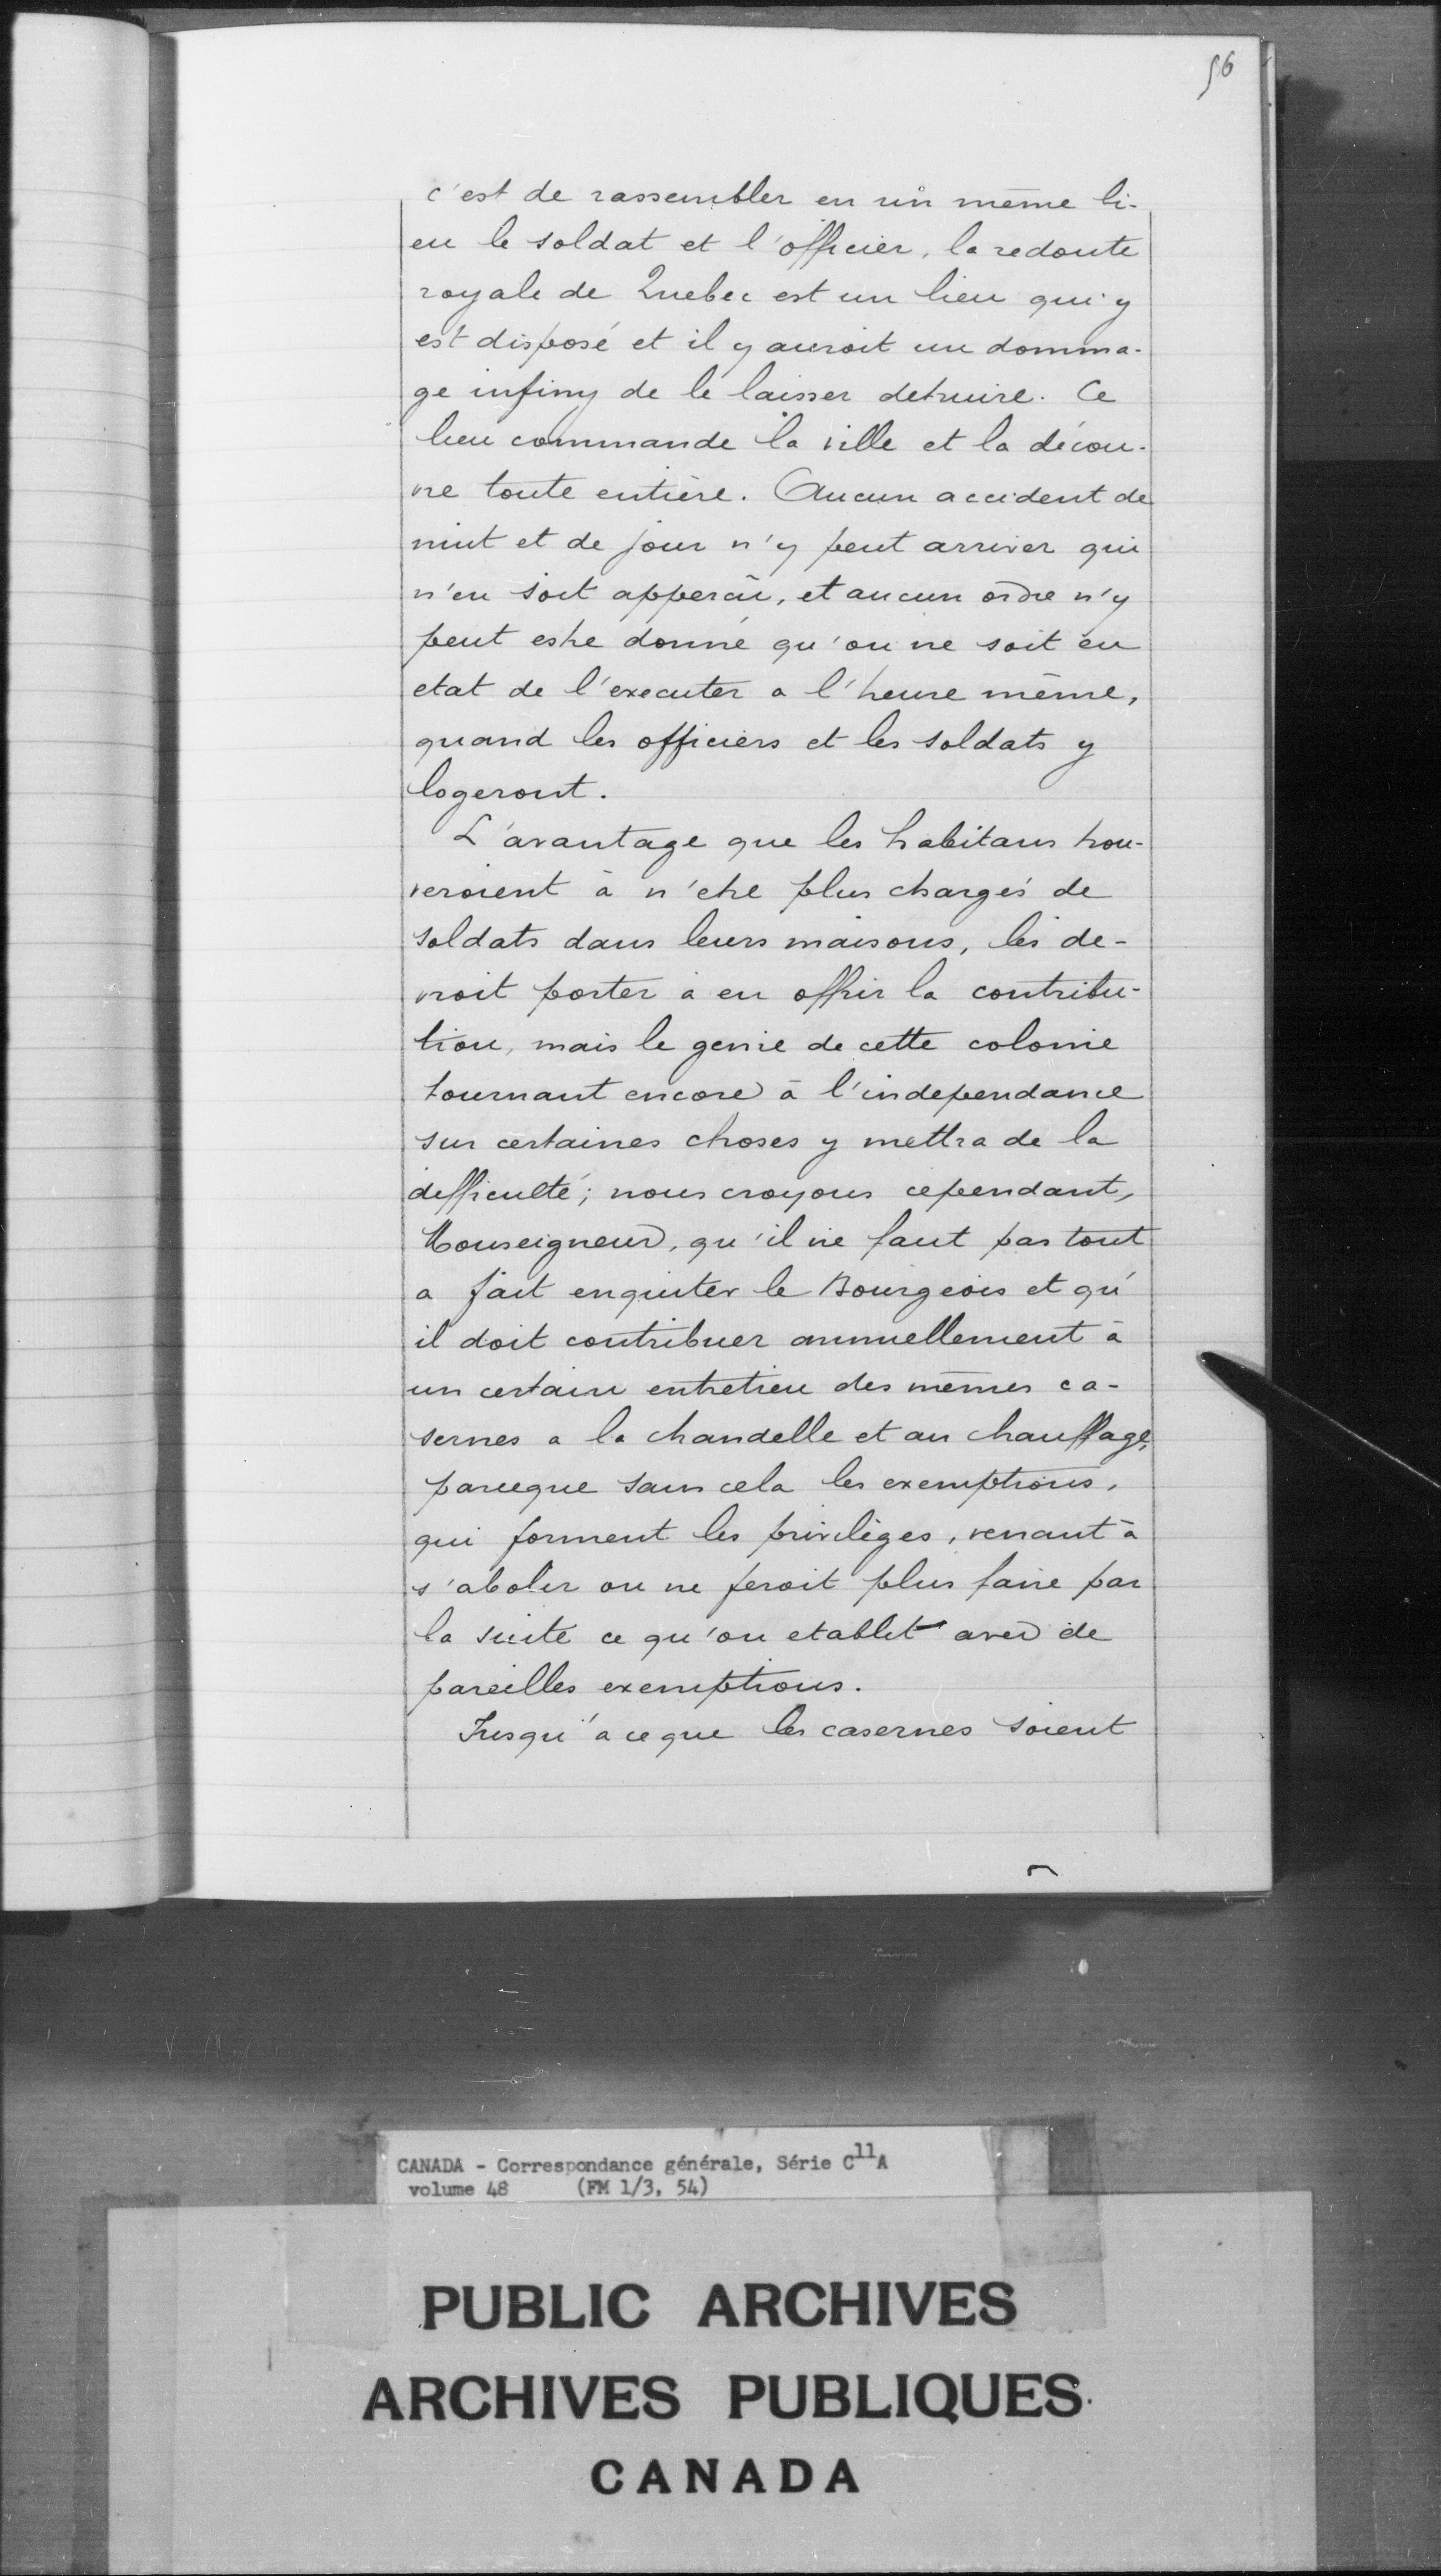 56
c'est de rassembler en un même li-
eu le soldat et l'officier, la redoute
royale de Quebec est un lieu qui y
est disposé et il y auroit un domma-
ge infiny de le laisser detruire. Ce
lieu commande la ville et la décou-
vre toute entière. Aucun accident de
nuit et de jour n'y peut arriver qui
n'en soit apperçû, et aucun ordre n'y
peut estre donné qu'on ne soit en
etat de l'executer a l'heure même,
quand les officiers et les soldats y
logeront.
L'avantage que les habitans trou-
veroient à n'etre plus chargés de
soldats dans leurs maisons, les de-
vroit porter à en offrir la contribu-
tion, mais le genie de cette colonie
tournant encore à l'independance
sur certaines choses y mettra de la
difficulté; nous croyons cependant,
Monseigneur, qu'il ne faut pas tout
a fait enquiter le Bourgeois et qu'
il doit contribuer annuellement à
un certain entretien des mêmes ca-
sernes a la chandelle et au chauffage,
parceque sans cela les exemptions,
qui forment les privilèges, venant à
s'abolir on ne feroit plus faire par
la suite ce qu'on etablit avec de
pareilles exemptions.
Jusqu'a ce que les casernes soient
CANADA - Correspondance générale, Série C11A
volume 48 (FM 1/3, 54)
PUBLIC ARCHIVES
ARCHIVES PUBLIQUES
CANADA